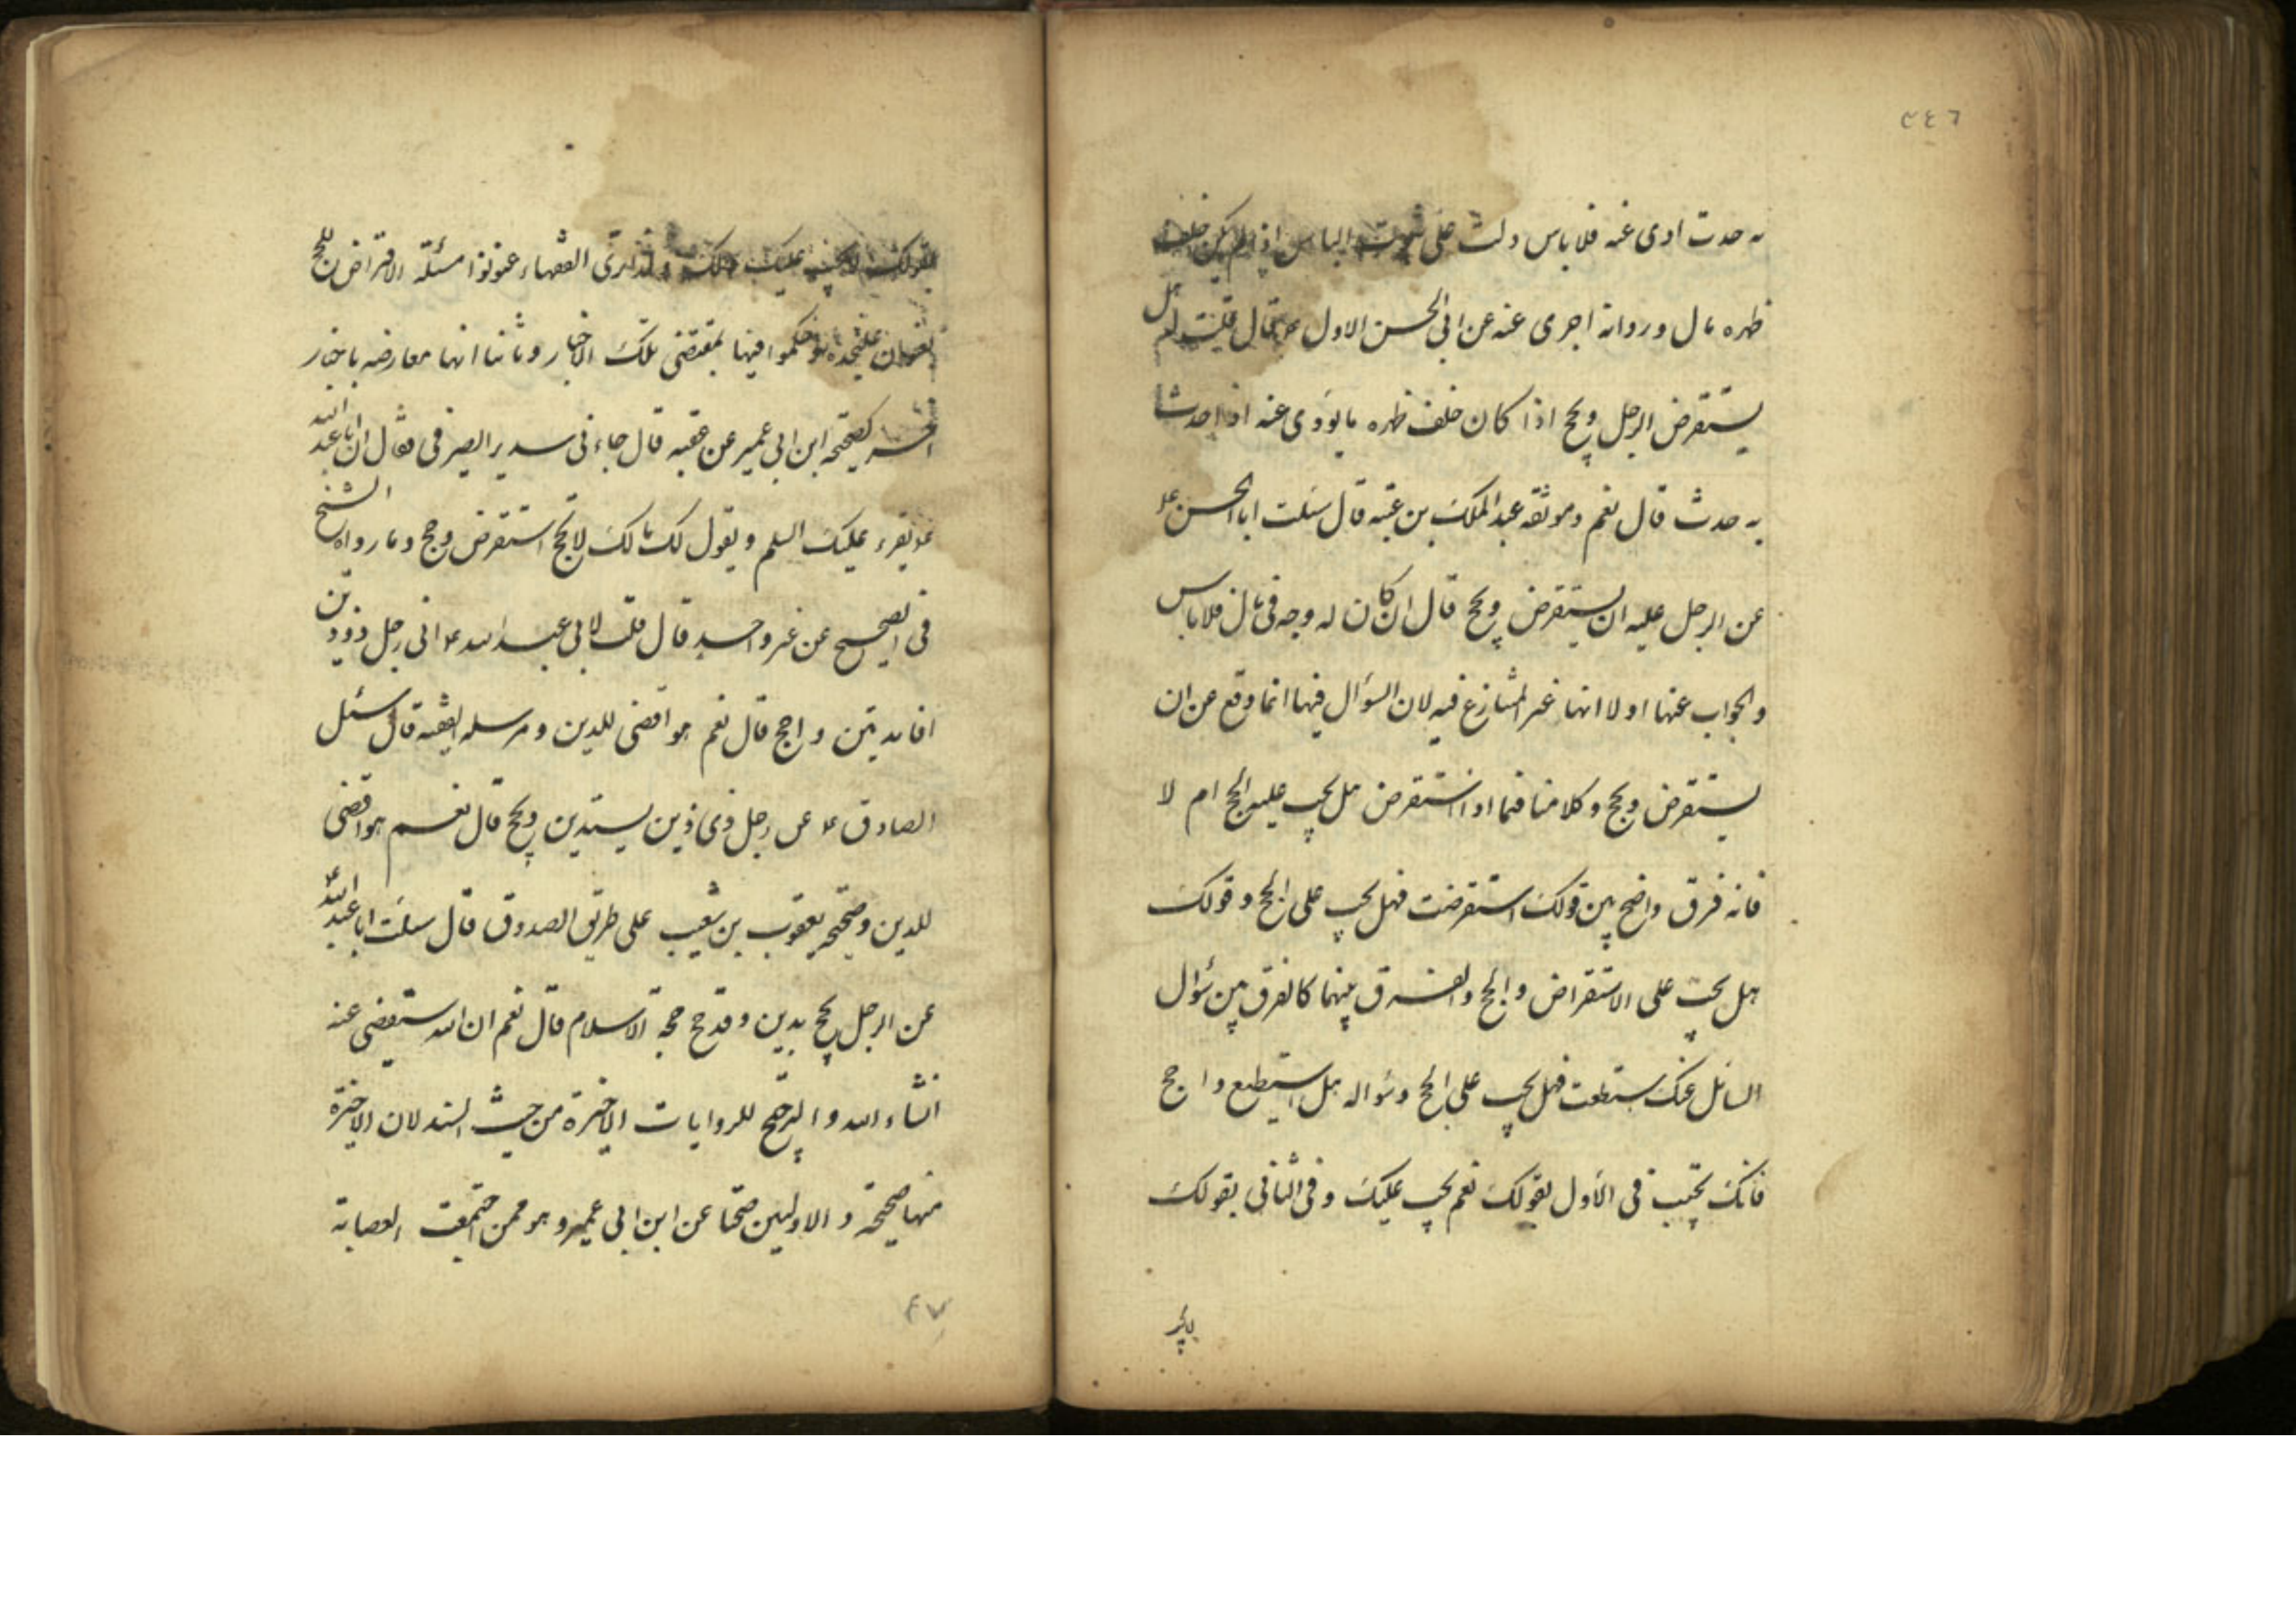 ٤٤٦
به حدث ادی عنه فلا باس دلت علی ثبوت الباس اذا لم یکن خلف
ظهره مال و روایة اخری عنه عن ابی الحسن الاول ع قال قلت له هل
یستقرض الرجل و یحج اذا کان خلف ظهره ما یؤدی عنه اذا حدث
به حدث قال نعم و موثقه عبد الملک بن عتبه قال سئلت ابا الحسن ع
عن الرجل علیه ان یستقرض و یحج قال ان کان له وجه فی مال فلا باس
و الجواب عنها اولا انها غیر المتنازع فیه لان السؤال فیها انما وقع عن ان
یستقرض و یحج و کلامنا فیما اذا استقرض هل یجب علیه الحج ام لا
فانه فرق واضح بین قولک استقرضت فهل یجب علی الحج و قولک
هل یجب علی الاستقراض و الحج و الفرق بینهما کالفرق بین سؤال
السائل عنک استطعت فهل یجب علی الحج و سؤاله هل استطیع و احج
فانک تجیب فی الأول بقولک نعم یجب علیک و فی الثانی بقولک
بقولک لا یجب علیک ذلک و لذا تری الفقهاء عنونوا مسئلة الاقتراض للحج
بعنوان علیحده و حکموا فیها بمقتضی تلک الاخبار و ثانیا انها معارضه باخبار
اخر کصحیحه ابن ابی عمیر عن عقبه قال جاءنی سدیر الصیرفی فقال ان ابا عبد الله
ع یقرء علیک السلم و یقول لک مالک لا تحج استقرض و حج و ما رواه الشیخ
فی الصحیح عن غیر واحد قال قلت لابی عبد الله ع انی رجل ذو دین
افاتدین و احج قال نعم هو اقضی للدین و مرسله الفقیه قال سئل
الصادق ع عن رجل ذی دین یستدین و یحج قال نعم هو اقضی
للدین و صحیحه یعقوب بن شعیب علی طریق الصدوق قال سئلت ابا عبد الله ع
عن الرجل یحج بدین و قد حج حجة الاسلام قال نعم ان الله سیقضی عنه
انشاء الله و الترجیح للروایات الاخیرة من حیث السند لان الاخیرة
منها صحیحة و الاولیین صحتا عن ابن ابی عمیر و هو ممن اجتمعت العصابة